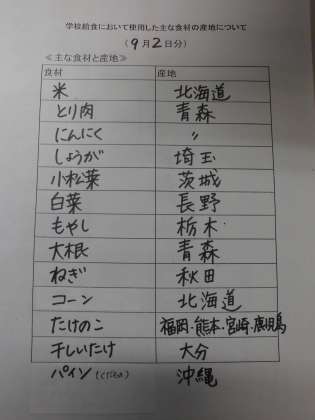 学校給食において使用した主な食材の産地について
(9月2日分)
≪主な食材と産地≫
食材 産地
米 北海道
とり肉 青森
にんにく 〃
しょうが 埼玉
小松菜 茨城
白菜 長野
もやし 栃木
大根 青森
ねぎ 秋田
コーン 北海道
たけのこ 福岡・熊本・宮崎・鹿児島
干しいたけ 大分
パイン(くだもの) 沖縄